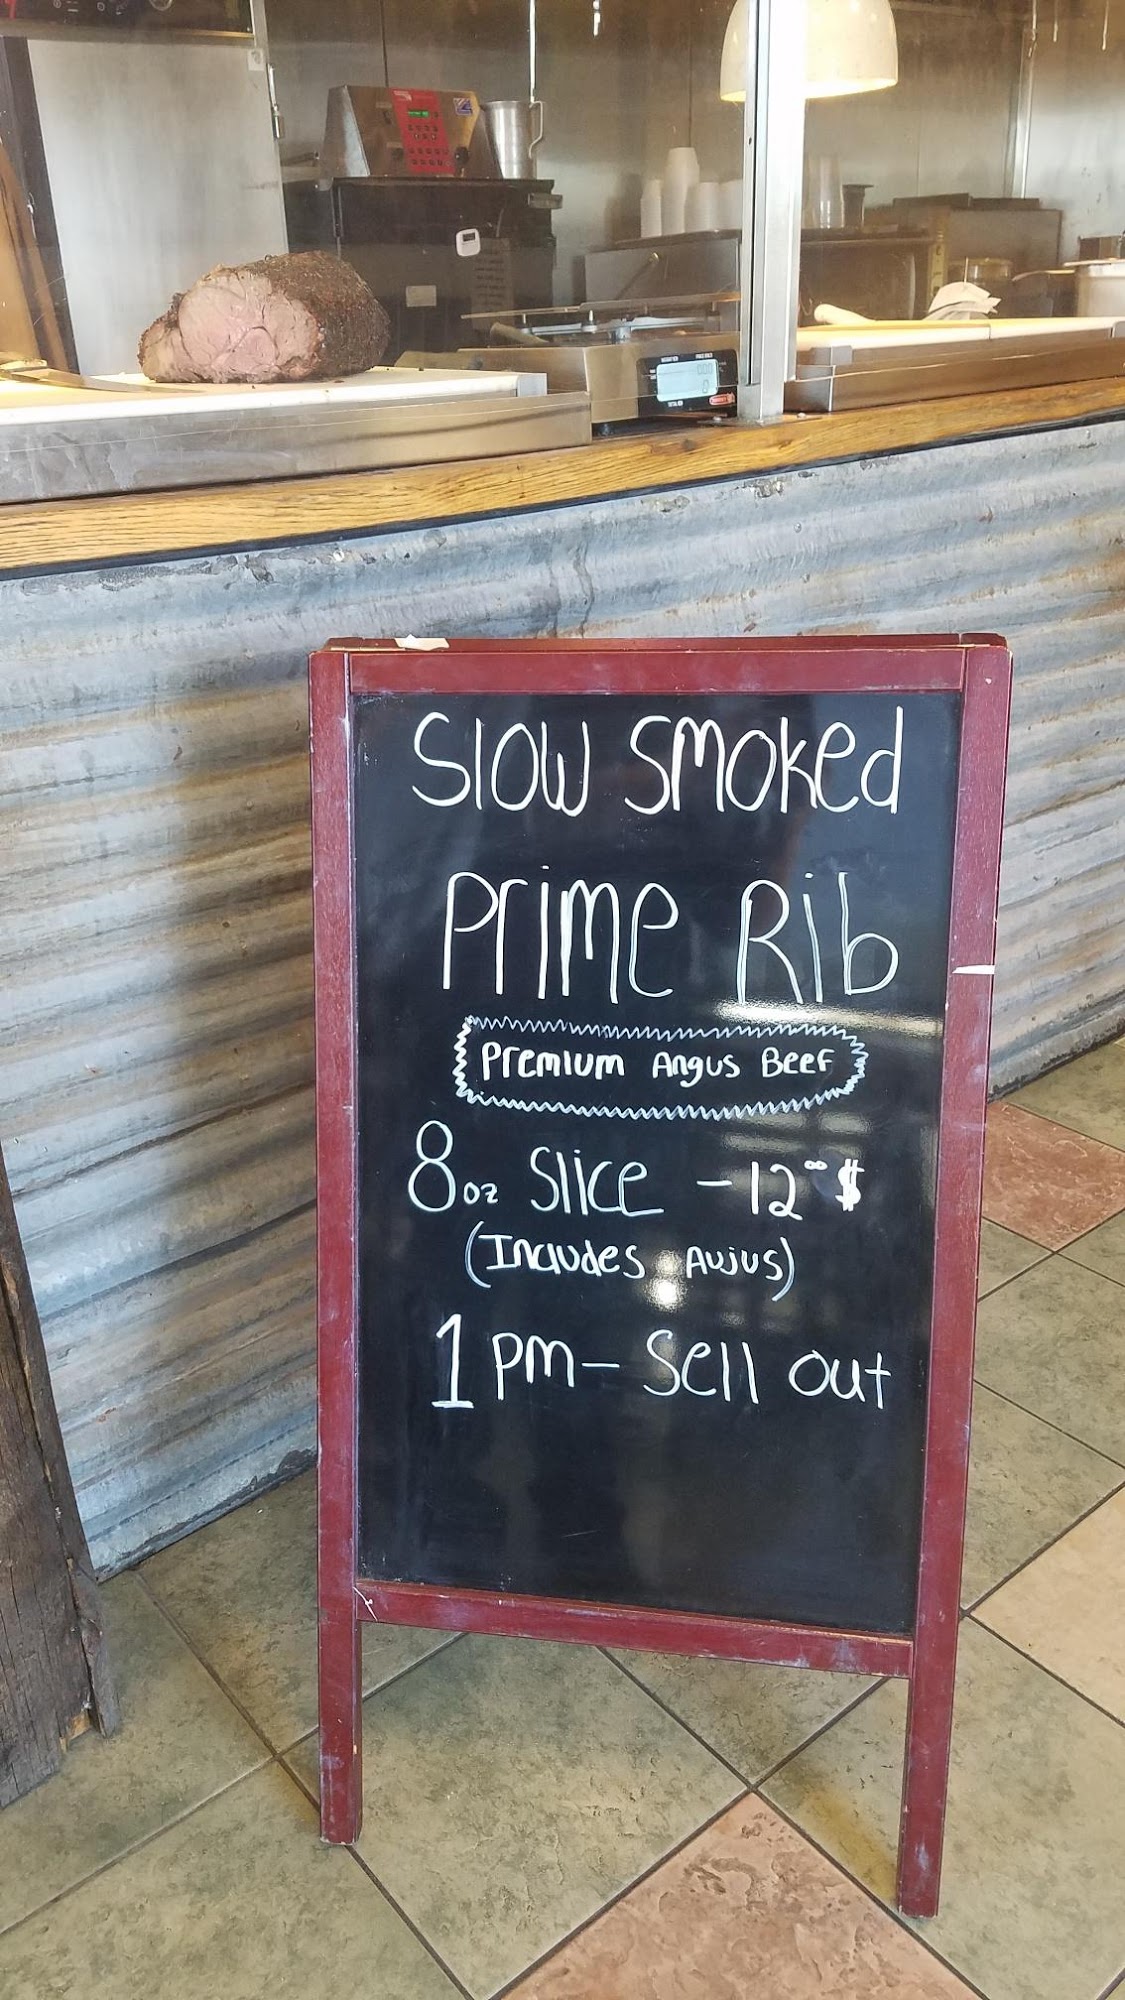 Slow Smoked
Prime Rib
Premium Angus Beef
8oz Slice - 12⁰⁰ $
(Includes Aujus)
1 pm - Sell out